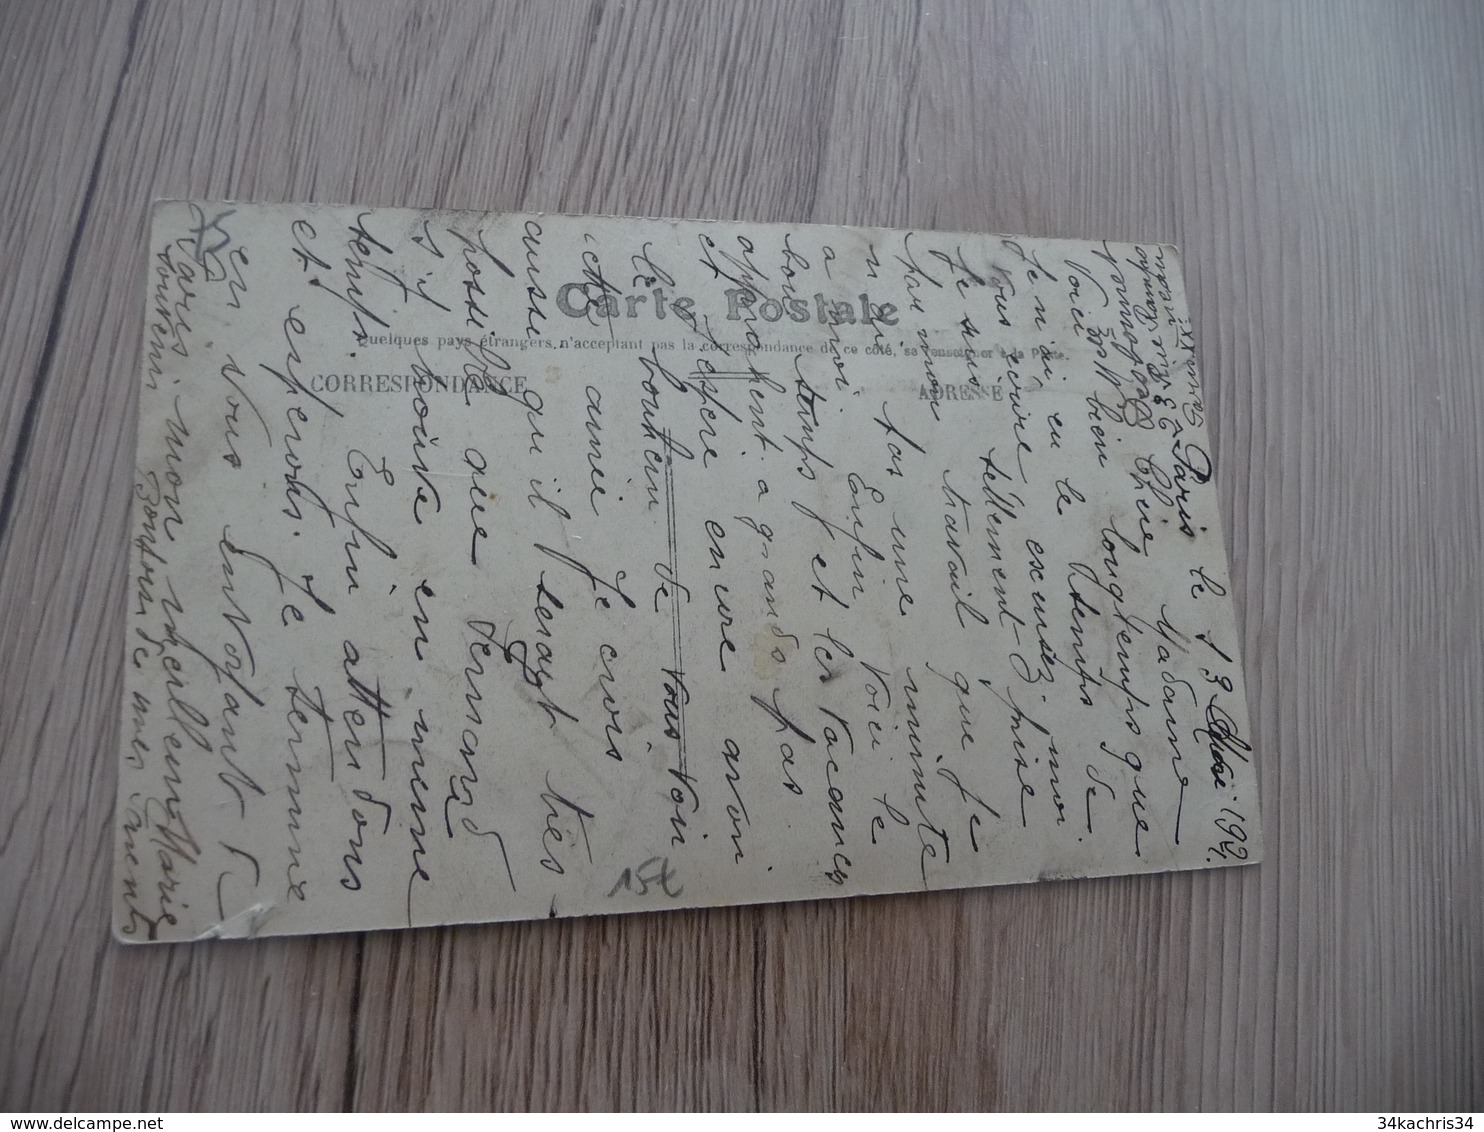 Carte Postale
Quelques pays étrangers n'acceptant pas la correspondance de ce côté, se renseigner à la Poste.
CORRESPONDANCE
ADRESSE
Paris le 13
Chère Madame
Voici bien longtemps que
Je n'ai eu le temps de
vous écrire excusez moi.
Je suis tellement prise
par mon travail que je
n'ai pas une minute
a moi. Enfin voici le
beau temps et les vacances
approchent a grands pas.
et J'espère encore avoir
le bonheur de vous voir
cette année Je crois
aussi qu'il serait très
possible que Fernand
s'il boite en même
temps. Enfin attendons
et espérons. Je termine
en vous envoyant
mon meilleur
souvenir Marie
Bonjour de mes Parents
15€
34kachris34